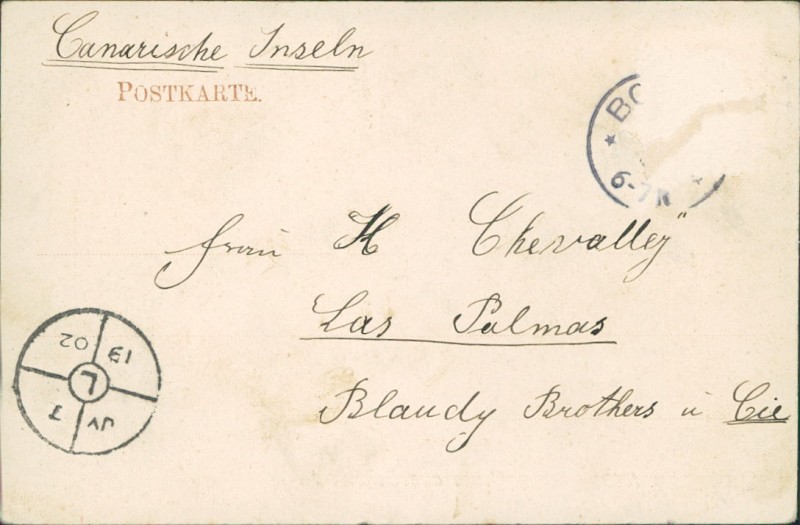 Canarische Inseln
POSTKARTE.
BO
6-7N
Frau H Chevalley
Las Palmas
Blandy Brothers u Cie
19 02
L
7 JY